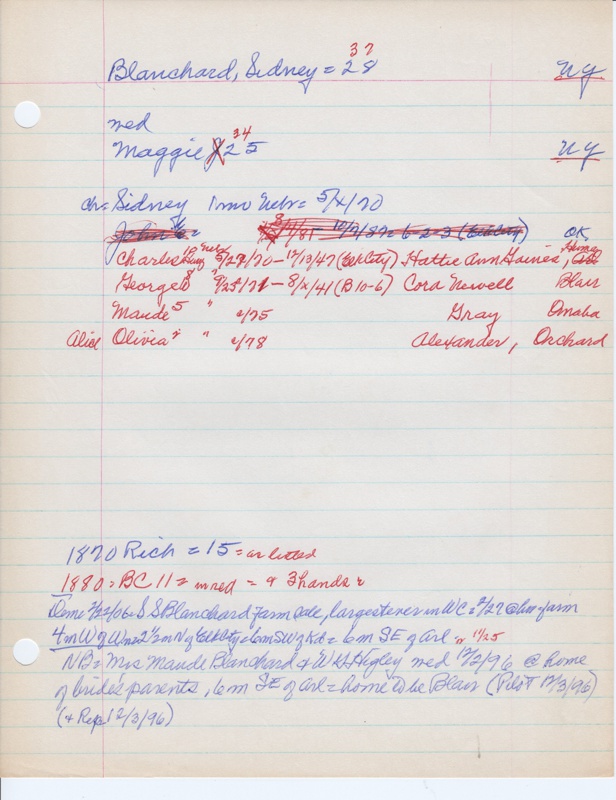 37
Blanchard, Sidney = 28 NY
wed
34
Maggie J 25 NY
ch = Sidney 1 mo Nebr = 5/x/70
John 8/ /81 - 10/7/87 = 6-2-3 (Elkcity) OK,
Charles 10 Nebr 5/27/70 - 12/13/47 (ElkCity) Hattie Ann Gaines, Homer,
George 8 " 9/25/71 - 8/x/41 (B 10-6) Cora Newell Blair
Maude 5 " c/75 Gray Omaha
Alice Olivia " c/78 Alexander, Orchard
1870 Rich = 15 = as listed
1880 = BC 11 = in red = + 3 hands
/22/06 = S S Blanchard Farm Sale, largest ever in WC = 2/27 @ his farm
4m W of Wn = 2½ m N of Elkcity = 6m SW of Kd = 6m SE of Arl 11/25
NB = Mrs Maude Blanchard & W H Higley wed 12/2/96 @ home
of brides parents, 6m SE of Arl = home to be Blair (Pilot 12/3/96)
(+ Rep 12/3/96)